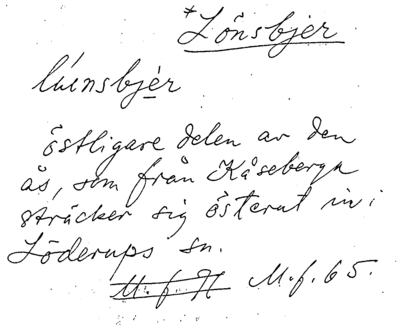 *Lönsbjer
lúensbjèr
östligare delen av den
ås, som från Kåseberga
sträcker sig österut in i
Löderups sn.
M.f. 65.